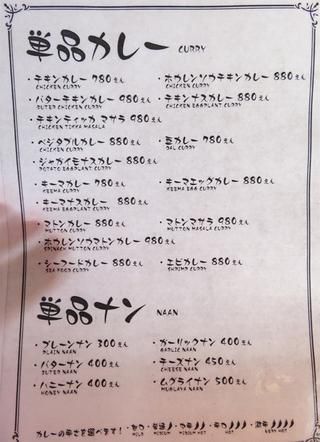 単品カレー CURRY
・チキンカレー 780えん ・ホウレンソウチキンカレー 880えん
CHICKEN CURRY
・バターチキンカレー 980えん ・チキンナスカレー 880えん
BUTER CHICKEN CURRY CHICKEN EGGPLANT CURRY
・チキンティッカ マサラ 980えん
CHICKEN TIKKA MASALA
・ベジタブルカレー 880えん ・豆カレー 780えん
DAL CURRY
・ジャガイモナスカレー 880えん
POTATO EGGPLANT CURRY
・キーマカレー 780えん ・キーマエッグカレー 880えん
KEEMA CURRY KEEMA EGG CURRY
・キーマナスカレー 880えん
KEEMA EGGPLANT CURRY
・マトンカレー 880えん ・マトンマサラ 980えん
MUTTON CURRY MUTTON MASALA CURRY
・ホウレンソウマトンカレー 980えん
SPINACH MUTTON CURRY
・シーフードカレー 880えん ・エビカレー 880えん
SEA FOOD CURRY SHRIMP CURRY
単品ナン NAAN
・プレーンナン 300えん ・ガーリックナン 400えん
PLAIN NAAN GARLIC NAAN
・バターナン 400えん ・チーズナン 450えん
BUTER NAAN CHEESE NAAN
・ハニーナン 400えん ・ムグライナン 500えん
HONEY NAAN MUGLAYA NAAN
カレーの辛さを選べます!
MILD MEDIUM MEDIUM HOT HOT VERY HOT